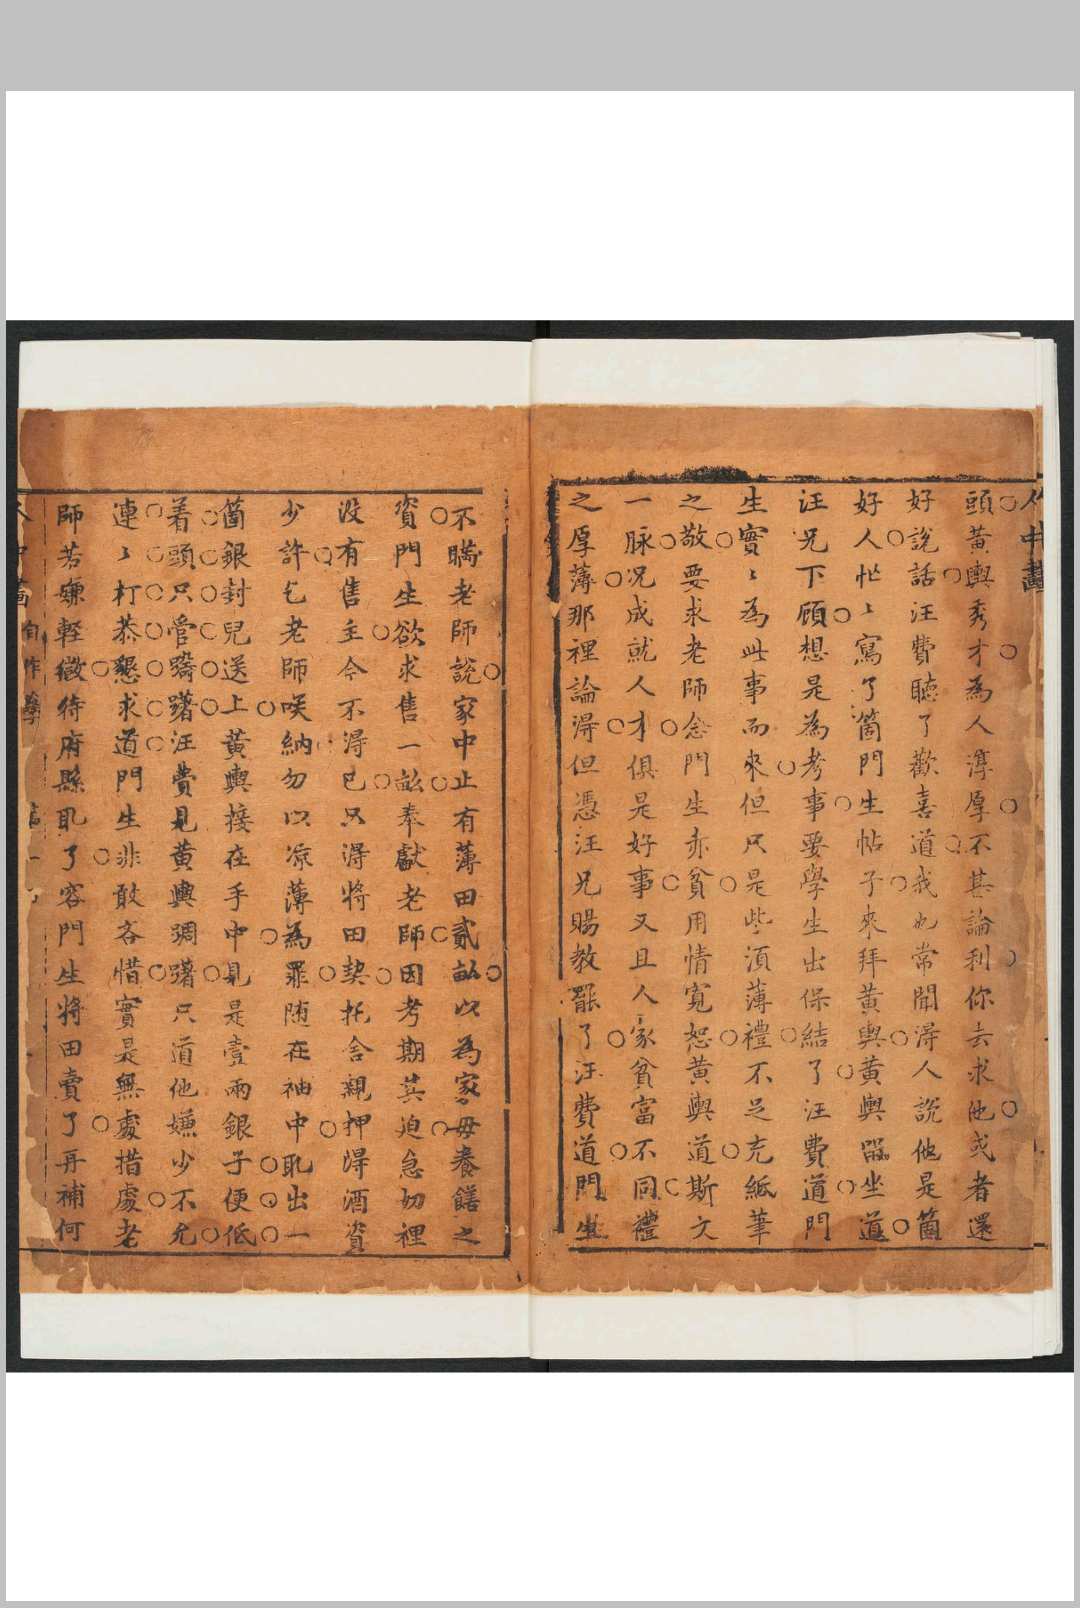 人中畫
頭黃輿秀才為人淳厚不甚論利你去求他或者還
好說話汪費聽了歡喜道我也常聞得人說他是箇
好人忙〻寫了箇門生帖子來拜黃輿黃輿留坐道
汪兄下顧想是為考事要學生出保結了汪費道門
生實〻為此事而來但只是些須薄禮不足充紙筆
之敬要求老師念門生赤貧用情寬恕黃輿道斯文
一脉况成就人才俱是好事又且人家貧富不同禮
之厚薄那裡論得但憑汪兄賜教罷了汪費道門生
不瞞老師說家中止有薄田貳畝以為家母養饍之
資門生欲求售一畝奉獻老師因考期甚迫急切裡
没有售主今不得已只得將田契托舍親押得酒資
少許乞老師咲納勿以凉薄為罪随在袖中取出一
箇銀封兒送上黃輿接在手中見是壹兩銀子便低
着頭只管躊躇汪費見黃輿躊躇只道他嫌少不允
連〻打恭懇求道門生非敢吝惜實是無處措處老
師若嫌輕微待府縣取了容門生將田賣了再補何
人中畫 自作孽